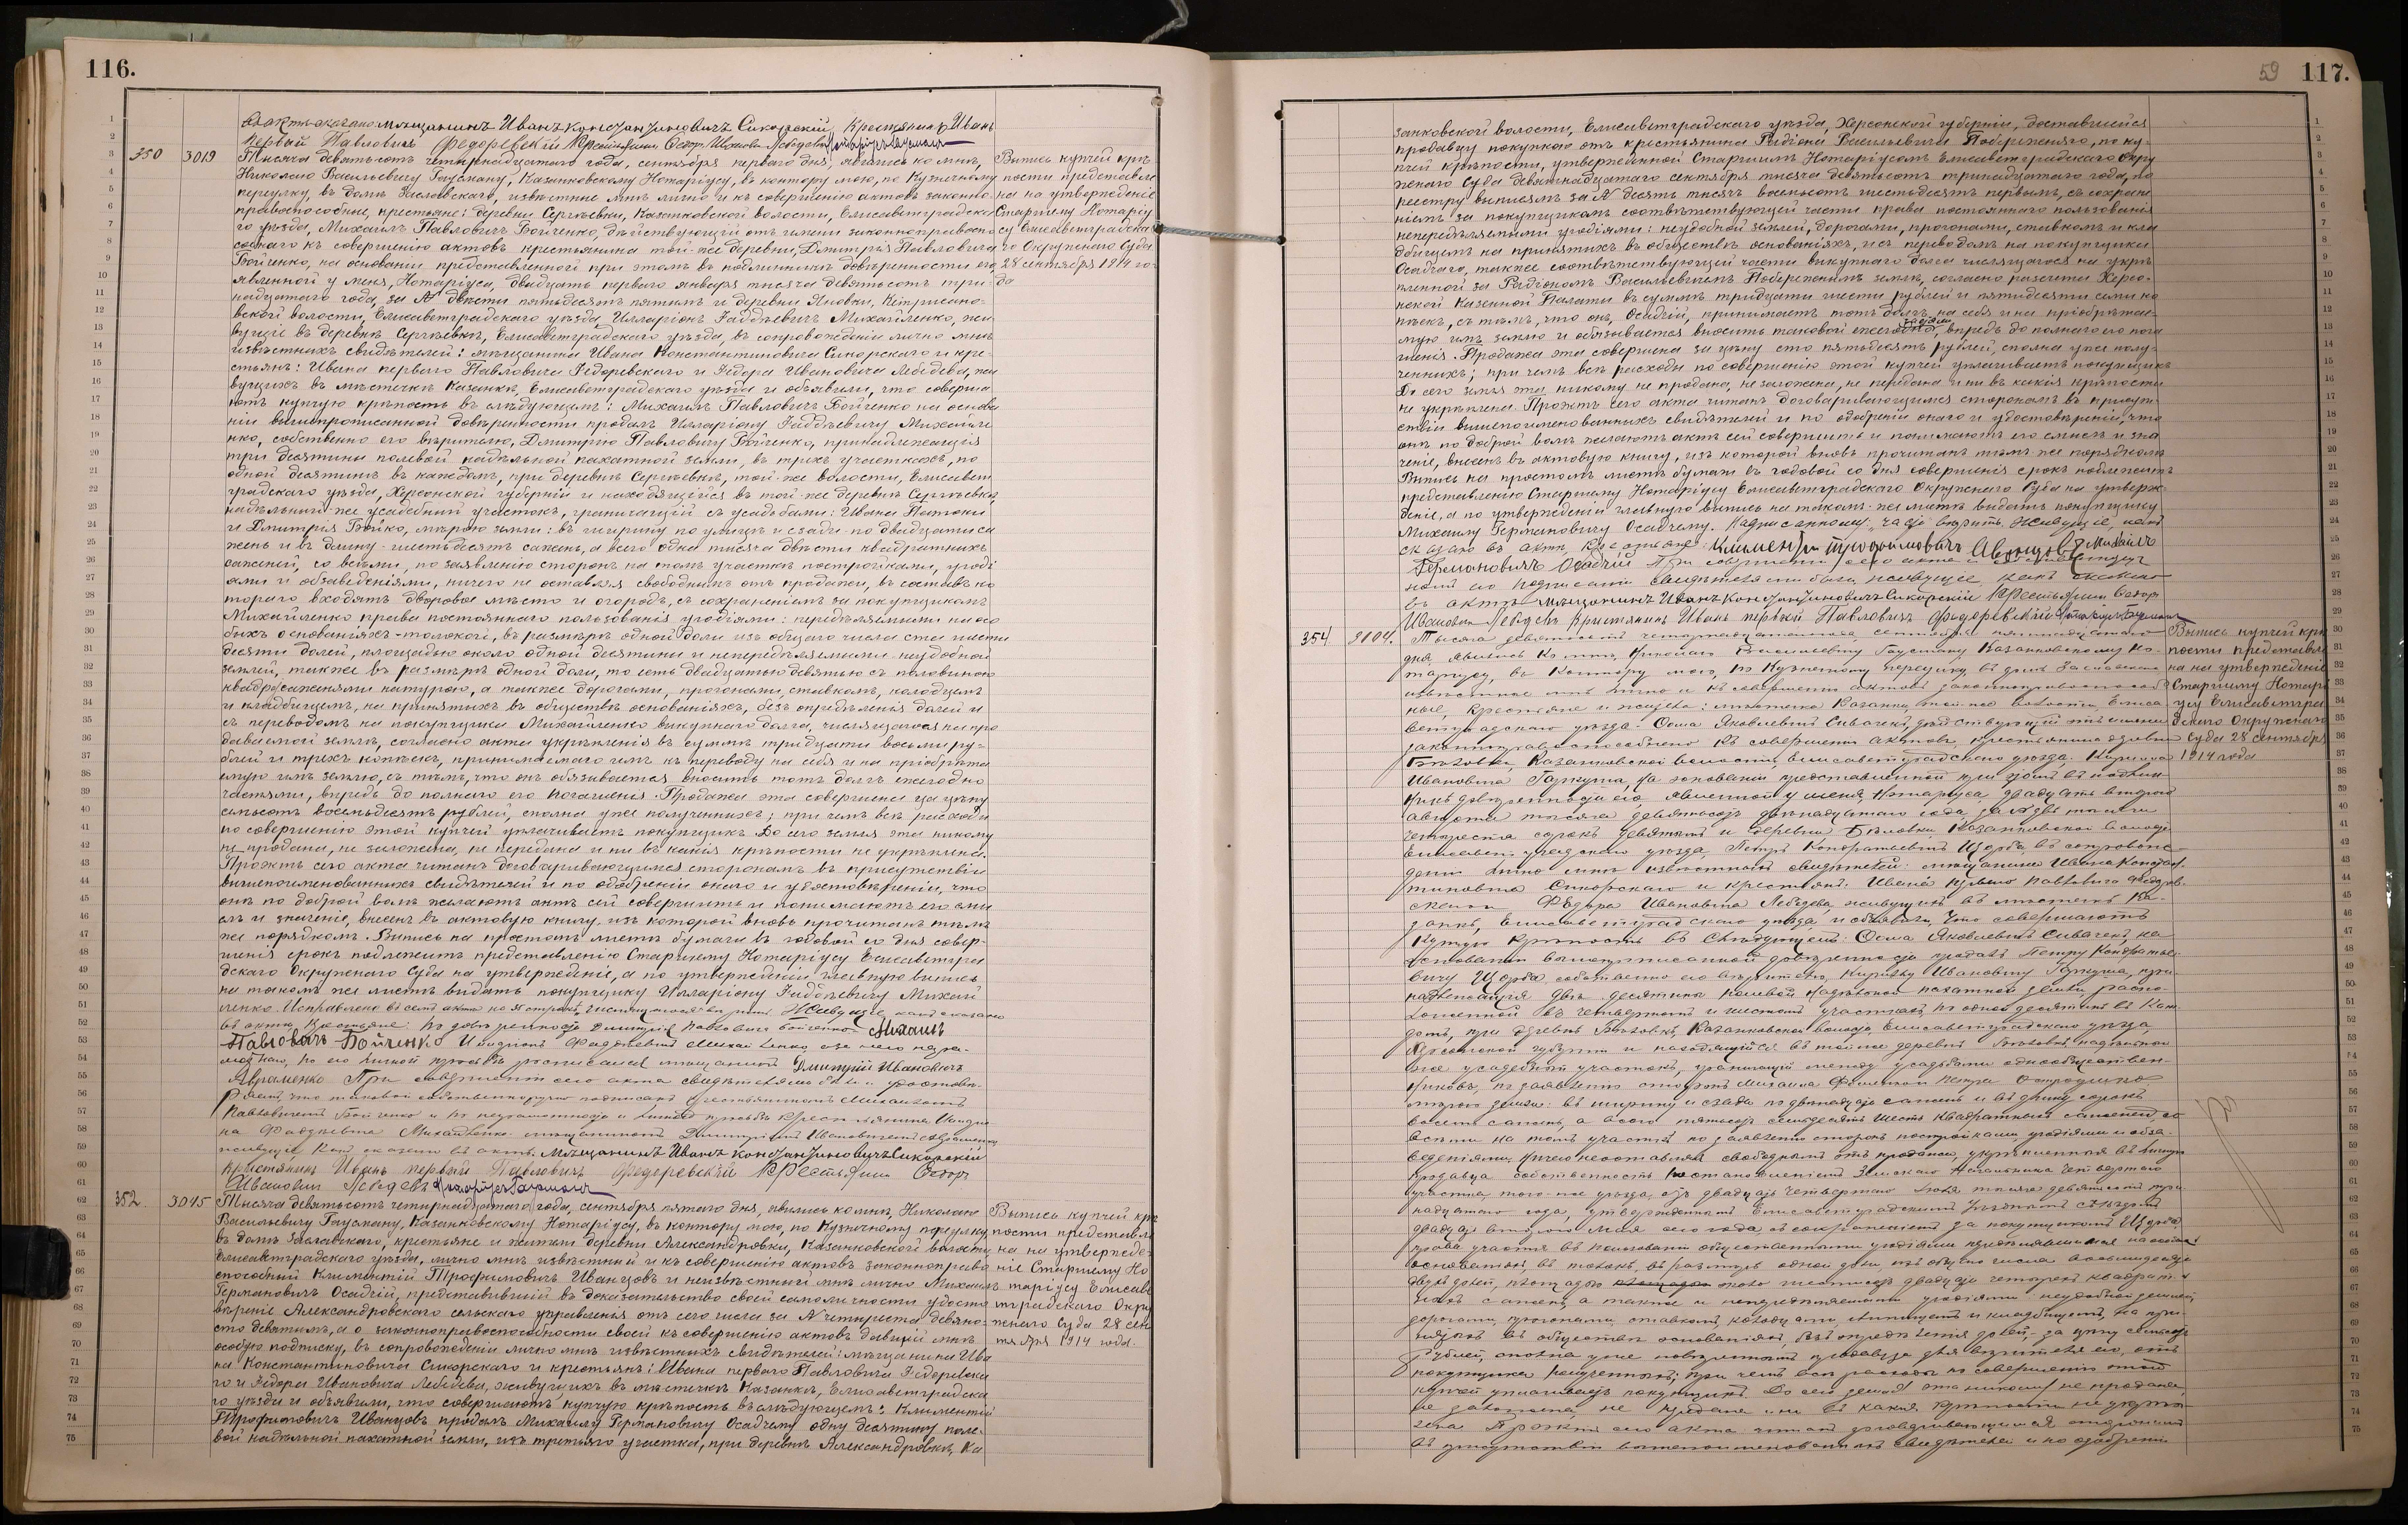 116.
въ актѣ сказано: мѣщанинъ Иванъ Константиновичъ Сикорскій, Крестьянинъ Иванъ
первый Павловичъ Федоревскій Крестьянинъ Федоръ Ивановъ Лебедевъ Нотаріусъ Гаусманъ
350 3019 Тысяча девятьсотъ четырнадцатаго года, сентября перваго дня, явились ко мнѣ,
Николаю Васильевичу Гаусману, Казанковскому Нотаріусу, въ контору мою, по Кузнечному
переулку, въ домѣ Заславскаго, извѣстные мнѣ лично и къ совершенію актовъ законно-
правоспособные, крестьяне: деревни Сергѣевки, Казанковской волости, Елисаветградска-
го уѣзда, Михаилъ Павловичъ Бойченко, дѣйствующій отъ имени законноправоспо-
собнаго къ совершенію актовъ крестьянина той-же деревни, Дмитрія Павловича
Бойченко, на основаніи представленной при этомъ въ подлинникѣ довѣренности его,
явленной у меня, Нотаріуса, двадцать перваго января тысяча девятьсотъ три-
надцатаго года, за № двѣсти пятьдесятъ пятымъ и деревни Яновки,
вской волости, Елисаветградскаго уѣзда, Илларіонъ Фаддѣевичъ Михайленко, жи-
вущіе въ деревнѣ Сергѣевкѣ, Елисаветградскаго уѣзда, въ сопровожденіи лично мнѣ
извѣстныхъ свидѣтелей: мѣщанина Ивана Константиновича Сикорскаго и кре-
стьянъ: Ивана перваго Павловича Федоревскаго и Федора Ивановича Лебедева, жи-
вущихъ въ мѣстечкѣ Казанкѣ, Елисаветградскаго уѣзда и объявили, что соверша-
ютъ купчую крѣпость въ слѣдующемъ: Михаилъ Павловичъ Бойченко на основа-
ніи вышепрописанной довѣренности продалъ Илларіону Фаддѣевичу Михайле-
нко, собственно его вѣрителю, Дмитрію Павловичу Бойченко, принадлежащія
три десятины полевой надѣльной пахатной земли, въ трехъ участкахъ, по
одной десятинѣ въ каждомъ, при деревнѣ Сергѣевкѣ, той-же волости, Елисавет-
градскаго уѣзда, Херсонской губерніи и находящійся въ той-же деревнѣ Сергѣевкѣ
надѣльный-же усадебный участокъ, граничащій съ усадьбами: Ивана
и Дмитрія Бойко, мѣрою земли: въ ширину по улицѣ и сзади-по двадцати са-
жень и въ длину-шестьдесятъ сажень, а всего одна тысяча двѣсти квадратныхъ
саженей, со всѣми, по заявленію сторонъ на томъ участкѣ постройками, угоді-
ями и обзаведеніями, ничего не оставляя свободнымъ отъ продажи, въ составъ ко-
тораго входятъ дворовое мѣсто и огородъ, съ сохраненіемъ за покупщикомъ
Михайленко права постояннаго пользованія угодіями: передѣляемыми на осо-
быхъ основаніяхъ-толокой, въ размѣрѣ одной доли изъ общаго числа ста шести-
десяти долей, площадью около одной десятины и непередѣляемыми-неудобной
землей, также въ размѣрѣ одной доли, то есть двадцатью девятью съ половиною
квадр. саженями натурою, а также дорогами, прогонами, ставкомъ, колодцемъ
и кладбищемъ, на принятыхъ въ обществѣ основаніяхъ, безъ опредѣленія долей и
съ переводомъ на покупщика Михайленко выкупного долга, числящагося на про-
даваемой землѣ, согласно акта укрѣпленія въ суммѣ тридцати восьми ру-
блей и трехъ копѣекъ, принимаемаго имъ къ переводу на себя и на пріобрѣта-
емую имъ землю, съ тѣмъ, что онъ обязывается вносить тотъ долгъ ежегодно
частями, впредь до полнаго его погашенія. Продажа эта совершена за цѣну
семьсотъ восемьдесятъ рублей, сполна уже полученныхъ; при чемъ всѣ расходы
по совершенію этой купчей уплачиваетъ покупщикъ. До сего земля эта никому
не продана, не заложена, не передана и ни въ какія крѣпости не укрѣплена.
Проэктъ сего акта читанъ договаривающимся сторонамъ въ присутствіи
вышепоименованныхъ свидѣтелей и по одобреніи онаго и удостовѣреніи, что
они по доброй волѣ желаютъ актъ сей совершить и понимаютъ его смы-
слъ и значеніе, внесенъ въ актовую книгу, изъ которой вновь прочитанъ тѣмъ-
же порядкомъ. Выпись на простомъ листѣ бумаги въ годовой со дня совер-
шенія срокъ подлежитъ представленію Старшему Нотаріусу Елисаветгра-
дскаго Окружнаго Суда на утвержденіе, а по утвержденіи главную выпись
на такомъ-же листѣ выдать покупщику Илларіону Фаддѣевичу Михай-
ленко.
въ актѣ, Крестьяне: по довѣренности Дмитрія Павловича Бойченко Михаилъ
Павловичъ Бойченко Илларіонъ Фаддѣевичъ Михайленко, а за него негра-
мотнаго, по его личной просьбѣ росписался мѣщанинъ Дмитрій Ивановичъ
Авраменко. При совершеніи сего акта свидѣтелями были и удостовѣ-
ряемъ, что таковой собственноручно подписанъ крестьяниномъ Михаиломъ
Павловичемъ Бойченко и по неграмотности и личной просьбѣ крестьянина Илларіо-
на Фаддѣевича Михайленко мѣщаниномъ Дмитріемъ Ивановичемъ Авраменко
живущіе, какъ сказано въ актѣ: Мѣщанинъ Иванъ Константиновичъ Сикорскій
Крестьянинъ Иванъ первый Павловичъ Федоревскій Крестьянинъ Федоръ
Ивановичъ Лебедевъ Нотаріусъ Гаусманъ
Выпись купчей крѣ-
пости представле-
на на утвержденіе
Старшему Нотаріу-
су Елисаветградска-
го Окружнаго Суда
28 сентября 1914 го-
да
352. 3045 Тысяча девятьсотъ четырнадцатаго года, сентября пятаго дня, явились ко мнѣ, Николаю
Васильевичу Гаусману, Казанковскому Нотаріусу, въ контору мою, по Кузнечному переулку,
въ домѣ Заславскаго, крестьяне и жители деревни Александровки, Казанковской волости,
Елисаветградскаго уѣзда, лично мнѣ извѣстный и къ совершенію актовъ законноправо-
способный Климентій Трофимовичъ Иванцовъ и неизвѣстный мнѣ лично Михаилъ
Германовичъ Осадчій, представившій въ доказательство своей самоличности удосто-
вѣреніе Александровскаго сельскаго управленія отъ сего числа за № четыреста девяно-
сто девятымъ, а о законноправоспособности своей къ совершенію актовъ давшій мнѣ
особую подписку, въ сопровожденіи лично мнѣ извѣстныхъ свидѣтелей: мѣщанина Ива-
на Константиновича Сикорскаго и крестьянъ: Ивана перваго Павловича Федоревска-
го и Федора Ивановича Лебедева, живущихъ въ мѣстечкѣ Казанкѣ, Елисаветградска-
го уѣзда и объявили, что совершаютъ купчую крѣпость въ слѣдующемъ: Климентій
Трофимовичъ Иванцовъ продалъ Михаилу Германовичу Осадчему одну десятину поле-
вой надѣльной пахатной земли, изъ третьяго участка, при деревнѣ Александровкѣ, Ка-
Выпись купчей крѣ-
пости представле-
на на утвержде-
ніе Старшему Но-
таріусу Елисаве-
тградскаго Окру-
жнаго Суда 28 сен-
тября 1914 года.
59 117.
занковской волости, Елисаветградскаго уѣзда, Херсонской губерніи, доставшейся
продавцу покупкою отъ крестьянина Радіона Васильевича Побережняго, по ку-
пчей крѣпости, утвержденной Старшимъ Нотаріусомъ Елисаветградскаго Окру-
жнаго Суда девятнадцатаго сентября тысяча девятьсотъ тринадцатаго года, по
реестру выписямъ за № десять тысячъ восемьсотъ шестьдесятъ первымъ, съ сохране-
ніемъ за покупщикомъ соотвѣтствующей части права постояннаго пользованія
непередѣляемыми угодіями: неудобной землей, дорогами, прогонами, ставкомъ и кла-
дбищемъ на принятыхъ въ обществѣ основаніяхъ, и съ переводомъ на покупщика
Осадчаго, также соотвѣтствующей части выкупного долга числящагося на укрѣ-
пленной за Радіономъ Васильевичемъ Побережнимъ землѣ, согласно разсчета Херсо-
нской Казенной Палаты въ суммѣ тридцати шести рублей и пятидесяти семи ко-
пѣекъ, съ тѣмъ, что онъ, Осадчій, принимаетъ тотъ долгъ на себя и на пріобрѣтае-
мую имъ землю и обязывается вносить таковой ежегодно, впредь до полнаго его пога-
шенія. Продажа эта совершена за цѣну сто пятьдесятъ рублей, сполна уже полу-
ченныхъ; при чемъ всѣ расходы по совершенію этой купчей уплачиваетъ покупщикъ.
До сего земля эта никому не продана, не заложена, не передана и ни въ какія крѣпости
не укрѣплена. Проэктъ сего акта читанъ договаривающимся сторонамъ въ присут-
ствіи вышепоименованныхъ свидѣтелей и по одобреніи онаго и удостовѣреніи, что
они по доброй волѣ желаютъ актъ сей совершить и понимаютъ его смыслъ и зна-
ченіе, внесенъ въ актовую книгу, изъ которой вновь прочитанъ тѣмъ-же порядкомъ.
Выпись на простомъ листѣ бумаги въ годовой со дня совершенія срокъ подлежитъ
представленію Старшему Нотаріусу Елисаветградскаго Окружнаго Суда на утверж-
деніе, а по утвержденіи главную выпись на такомъ-же листѣ выдать покупщику
Михаилу Германовичу Осадчему. Надписанному вѣрить. Живущіе, какъ
сказано въ актѣ, Крестьяне: Климентій Трофимовичъ Иванцовъ Михаилъ
Германовичъ Осадчій При совершеніи сего акта и
свидѣтелями были, живущіе, какъ сказано
въ актѣ Мѣщанинъ Иванъ Константиновичъ Сикорскій Крестьянинъ Федоръ
Ивановичъ Лебедевъ Крестьянинъ Иванъ первый Павловичъ Федоревскій Нотаріусъ Гаусманъ
354 3104. Тысяча девятьсотъ четырнадцатаго года, сентября пятнадцатаго
дня, явились ко мнѣ, Николаю Васильевичу Гаусману, Казанковскому Но-
таріусу, въ контору мою, по Кузнечному переулку, въ домѣ Заславскаго
извѣстные мнѣ лично и къ совершенію актовъ законноправоспособ-
ные, крестьяне и жители: мѣстечка Казанки, той-же волости, Елиса-
ветградскаго уѣзда Фома Яковлевичъ Сиваченко, дѣйствующій отъ имени
законноправоспособнаго къ совершенію актовъ, крестьянина деревни
Казанковской волости, Елисаветградскаго уѣзда, Кирилла
Ивановича Гаркуша, на основаніи представленной при этомъ въ подлин-
никѣ довѣренности его, явленной у меня, Нотаріуса, двадцать второго
августа тысяча девятьсотъ двѣнадцатаго года за № двѣ тысячи
четыреста сорокъ девятымъ и деревни Казанковской волости
Елисаветградскаго уѣзда, Петръ Кондратьевичъ Щорба, въ сопровож-
деніи лично мнѣ извѣстныхъ свидѣтелей: мѣщанина Ивана Констан-
тиновича Сикорскаго и крестьянъ: Ивана перваго Павловича Федорев-
скаго и Федора Ивановича Лебедева, живущихъ въ мѣстечкѣ Ка-
занкѣ, Елисаветградскаго уѣзда, и объявили, что совершаютъ
купчую крѣпость въ слѣдующемъ: Фома Яковлевичъ Сиваченко, на
основаніи вышепрописанной довѣренности продалъ Петру Кондратье-
вичу Щорба, собственно его вѣрителю, Кириллу Ивановичу Гаркуша, при-
надлежащія двѣ десятины полевой надѣльной пахатной земли, распо-
ложенной въ четвертомъ и шестомъ участкахъ, по одной десятинѣ въ каж-
домъ, при деревнѣ Казанковской волости, Елисаветградскаго уѣзда,
Херсонской губерніи и находящійся въ той-же деревнѣ надѣльный-
же усадебный участокъ, граничащій между усадьбами однообществен-
никовъ, по заявленію сторонъ Михаила и Петра
мѣрою земли: въ ширину и сзади по двѣнадцати саженъ и въ длину сорокъ
восемь саженъ, а всего пятьсотъ семьдесятъ шесть квадратныхъ саженей, со
всѣми на томъ участкѣ по заявленію сторонъ постройками, угодіями и обза-
веденіями, ничего не оставляя свободнымъ отъ продажи, укрѣпленныя въ личную
продавца собственность постановленіемъ Земскаго Начальника четвертаго
участка, того-же уѣзда, отъ двадцать четвертаго іюля тысяча девятьсотъ три-
надцатаго года, утвержденнымъ Елисаветградскимъ Уѣзднымъ съѣздомъ
двадцать второго мая сего года, съ сохраненіемъ за покупщикомъ Щорба
права участія въ пользованіи общественными угодіями
основаніяхъ, въ толокѣ, въ размѣрѣ одной доли, изъ общаго числа восьмидесяти
двухъ долей, площадью около шестисотъ двадцати четырехъ квадрат-
ныхъ саженъ, а также и непередѣляемыми угодіями неудобной землей,
дорогами, прогонами, ставкомъ, колодцами, и кладбищемъ, на при-
нятыхъ въ обществѣ основаніяхъ, безъ опредѣленія долей, за цѣну семьсотъ
рублей, сполна уже повѣреннымъ продавца для вѣрителя его, отъ
покупщика полученныхъ; при чемъ всѣ расходы по совершенію этой
купчей уплачиваетъ покупщикъ. До сего земля эта никому не продана,
не заложена, не передана и ни въ какія крѣпости не укрѣп-
лена Проэктъ сего акта читанъ договаривающимся сторонамъ
въ присутствіи вышепоименованныхъ свидѣтелей и по одобреніи
Выпись купчей крѣ-
пости представле-
на на утвержденіе
Старшему Нотарі-
усу Елисаветгра-
дскаго Окружнаго
Суда 28 сентября
1914 года